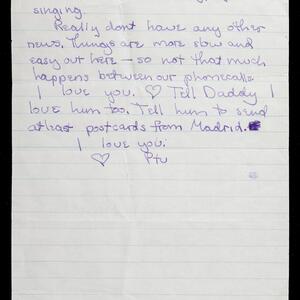 singing.
Really don't have any other
news. Things are more slow and
easy out here — so not that much
happens between our phonecalls
I love you. ♡ Tell Daddy I
love him too. Tell him to send
at least postcards from Madrid.
I love you.
♡ Ptu